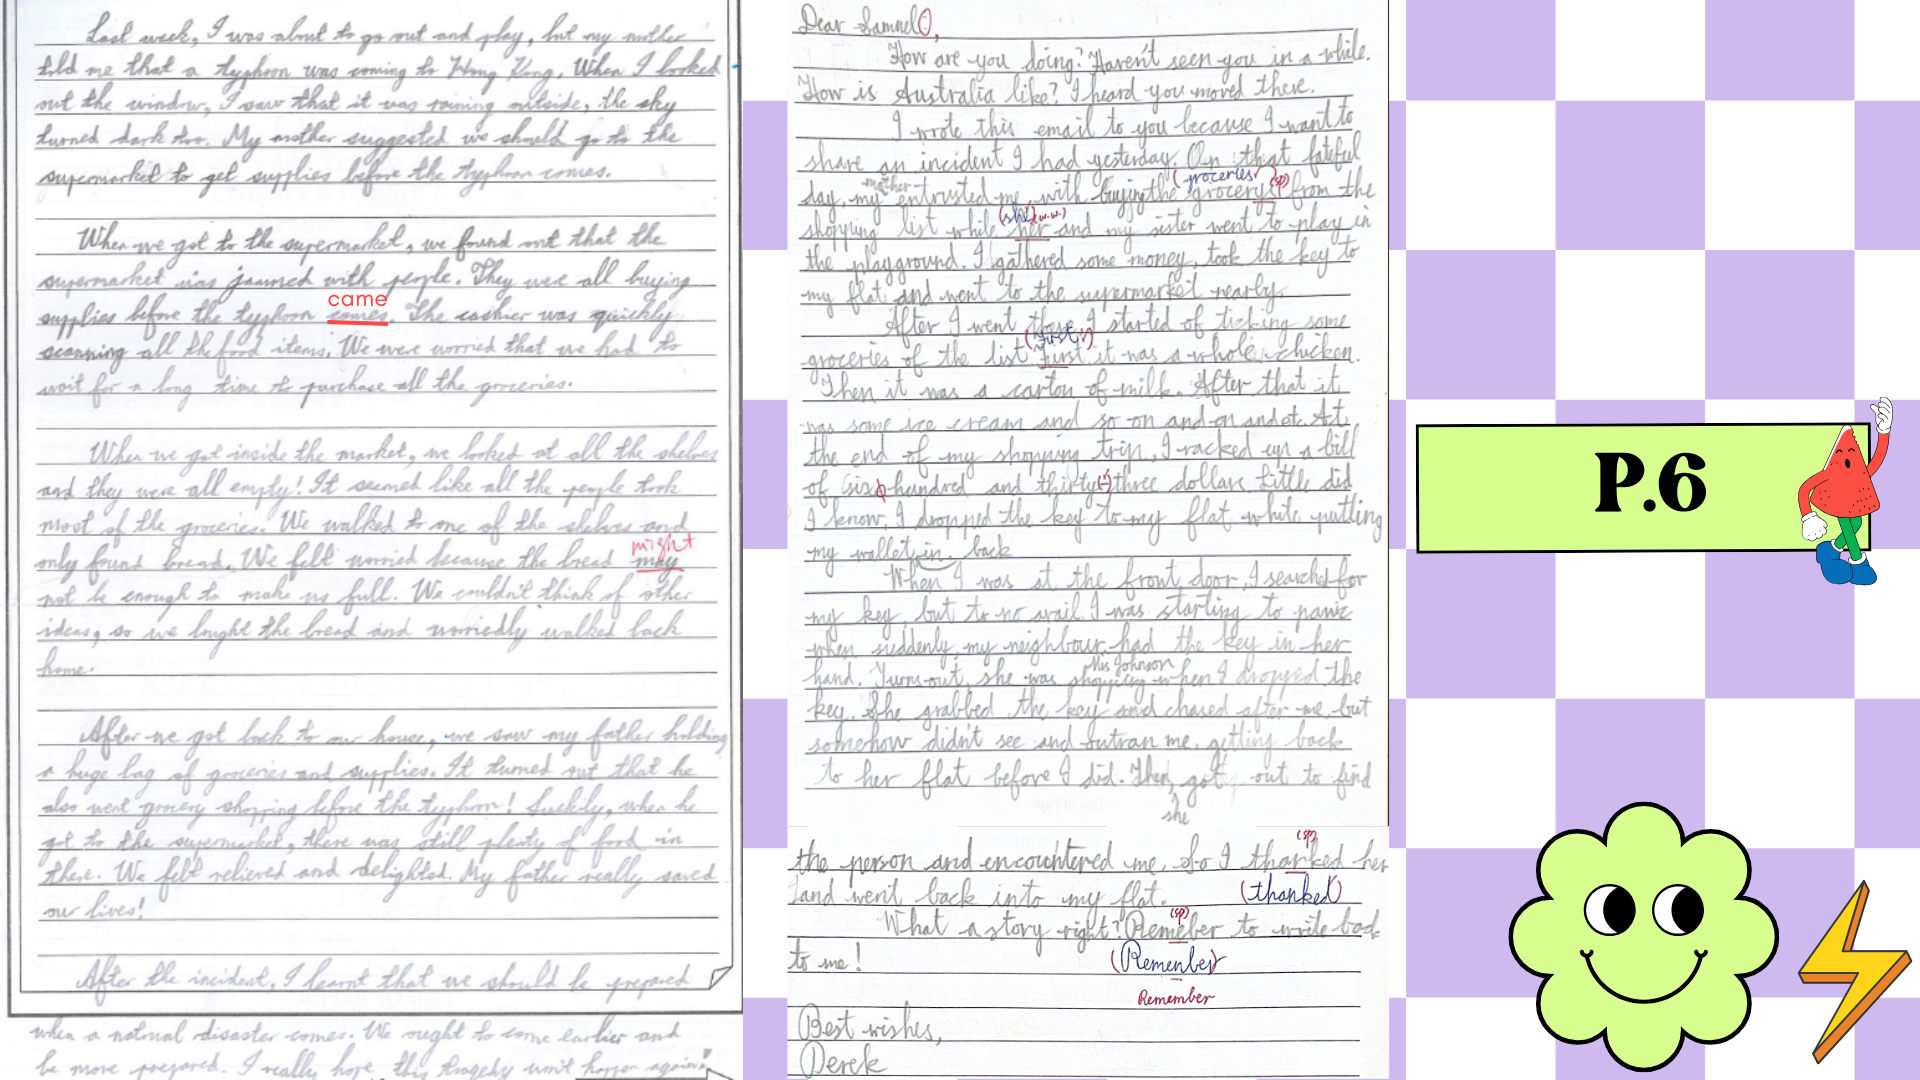 Last week, I was about to go out and play, but my mother
told me that a typhoon was coming to Hong Kong. When I looked
out the window, I saw that it was raining outside, the sky
turned dark too. My mother suggested we should go to the
supermarket to get supplies before the typhoon comes.
When we got to the supermarket, we found out that the
supermarket was jammed with people. They were all buying
came
supplies before the typhoon comes. The cashier was quickly
scanning all the food items. We were worried that we had to
wait for a long time to purchase all the groceries.
When we got inside the market, we looked at all the shelves
and they were all empty! It seemed like all the people took
most of the groceries. We walked to one of the shelves and
might
only found bread. We felt worried because the bread may
not be enough to make us full. We couldn't think of other
ideas, so we bought the bread and worriedly walked back
home.
After we got back to our house, we saw my father holding
a huge bag of groceries and supplies. It turned out that he
also went grocery shopping before the typhoon! Luckily, when he
got to the supermarket, there was still plenty of food in
there. We felt relieved and delighted. My father really saved
our lives!
After the incident, I learnt that we should be prepared
when a natrual disaster comes. We ought to come earlier and
be more prepared. I really hope this tragedy won't happen again!
Dear Samuel,
How are you doing? Haven't seen you in a while.
How is Australia like? I heard you moved there.
I wrote this email to you because I want to
share an incident I had yesterday. On that fateful
mother (groceries) (sp)
day, my entrusted me with buying the grocerys from the
(she) (w.w.)
shopping list while her and my sister went to play in
the playground. I gathered some money, took the key to
my flat and went to the supermarket nearby.
After I went there I started of ticking some
(first)
groceries of the list. Furst it was a whole chicken.
Then it was a carton of milk. After that it
was some ice cream and so on and on and etc. At
the end of my shopping trip, I racked up a bill
of six hundred and thirty(-)three dollars. Little did
I know, I dropped the key to my flat while putting
my wallet in back
When I was at the front door, I searched for
my key, but to no avail. I was starting to panic
when suddenly, my neighbour had the key in her
Mis Johnson
hand. Turns out, she was shopping when I dropped the
key. She grabbed the key and chased after me, but
somehow didn't see and outran me, getting back
to her flat before I did. Then, got out to find
she
(sp)
the person and encountered me. So I tharked her
and went back into my flat. (thanked)
(sp)
What a story right? Remeber to write back
to me! (Remenber)
Remember
Best wishes,
Derek
P.6